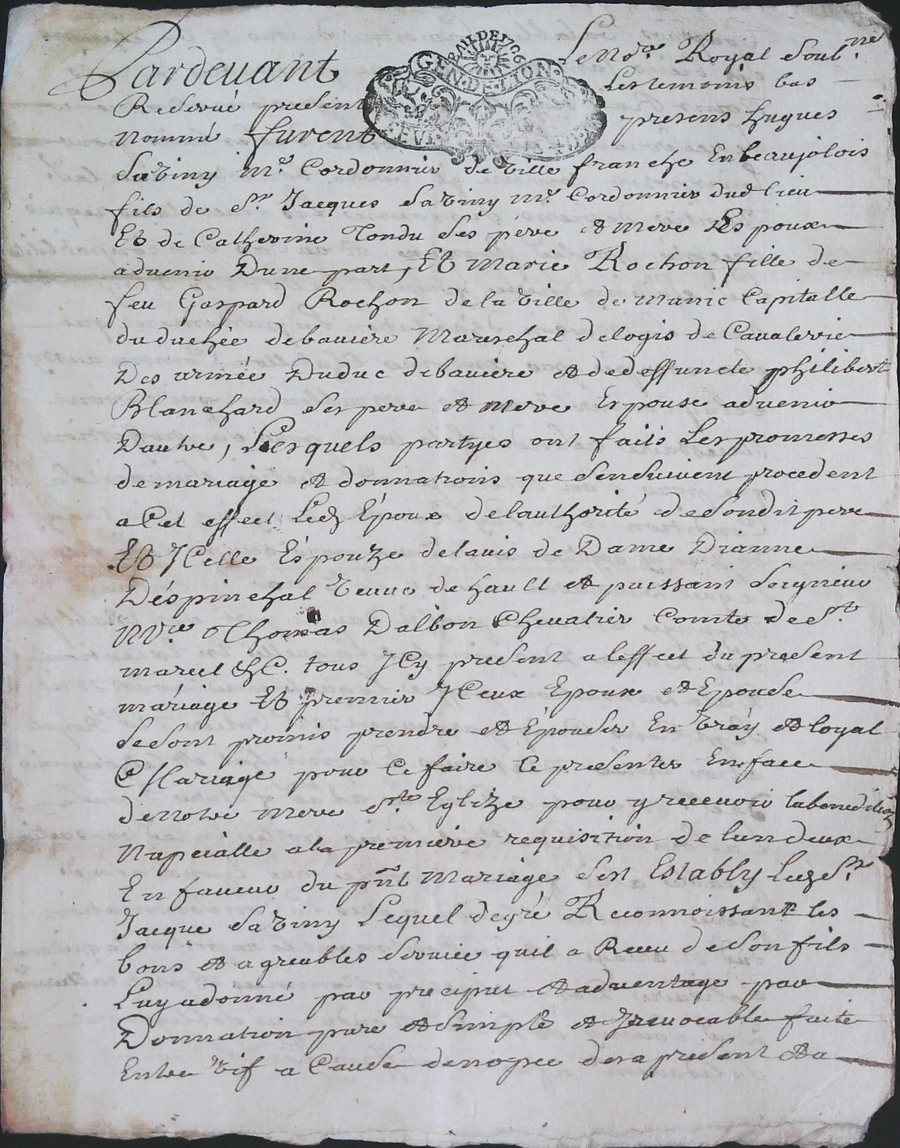 BAIL DE 1706
GEN. DE LION
Pardevant Le No.re Royal Soub.ne
Reservé present Les temoins bas
Nommé furent presens hugues
Saviny m.e Cordonnier de ville franche En beaujolois
fils de S.r Jacques Saviny m.e Cordonnier dud lieu
Et de Catherine Tondu Ses pere et mere Espoux
advenir Dune part, Et Marie Rochon fille de
feu Gaspard Rochon de la ville de manic Capitalle
du duchée de baviere Mareschal de logis de Cavalerie
Des armée Du duc de baviere et de deffuncte philiberte
Blanchard Ses pere et mere Espouse advenir
Dautre, Lesquels partyes ont faits Les promesses
de mariage et donnations que Sensuivent procedent
a Cet effect Led Époux de lauthorité de Sondit pere
Et Icelle Éspouze de lavis de Dame Dianne
Déspinchal veuve de hault et puissant Seigneur
M.re Thomas Dalbon Chevalier Comte de S.t
marcel &C. tous Icy present a leffect du present
máriage Et premier Iceux Epoux et Epouse
se sont promis prendre et Épouser En vray et loyal
Mariage pour Ce faire Se presenter En face
de notre mere S.te Eglize pour y recevoir la benediction
Nupcialle a la premiere requisition de lun deux
En faveur du pñt Mariage Sest Estably Led S.r
Jacque Saviny Lequel de gré Reconnoissant les
bons et agreables Service quil a Receu de Son fils
Luy a donné par preciput et advantage par
Donnation pure et Simple et Irrevocable faite
Entre vif a Cause de nopce des a present et a